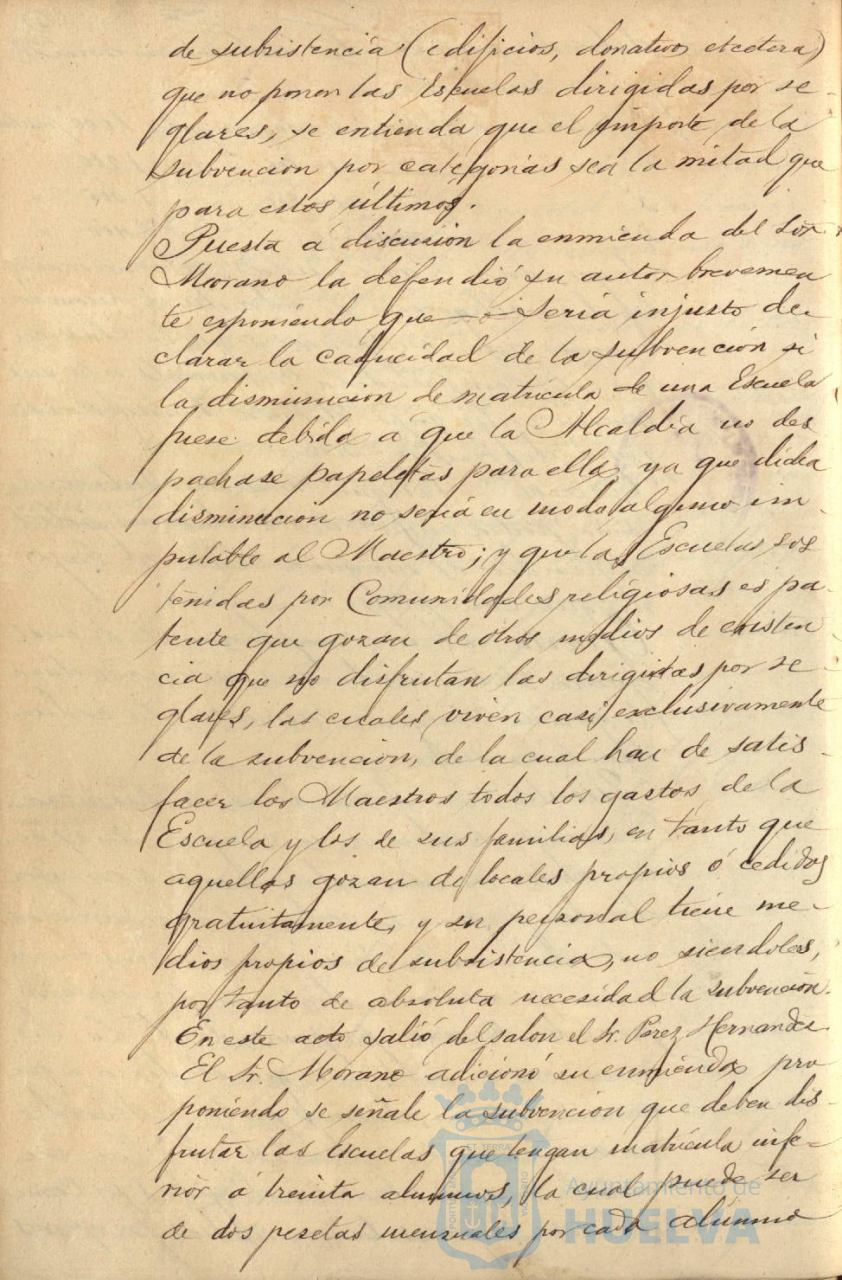 de subsistencia (edificios, donativos etcetera)
que no ponen las Escuelas dirigidas por se-
glares, se entienda que el importe de la
subvencion por categorías sea la mitad que
para estos últimos.
Puesta á discusión la enmienda del Sor
Morano la defendió su autor brevemen
te exponiendo que seria injusto de-
clarar la caducidad de la subvención si
la disminucion de matrícula de una Escuela
fuese debida á que la Alcaldía no des
pachase papeletas para ella, ya que dicha
disminucion no sería en modo alguno im-
putable al Maestro; y que las Escuelas sos
tenidas por Comunidades religiosas es pa-
tente que gozan de otros medios de existen
cia que no disfrutan las dirigidas por se-
glares, las cuales viven casi exclusivamente
de la subvencion, de la cual han de satis-
facer los Maestros todos los gastos de la
Escuela y los de sus familias, en tanto que
aquellas gozan de locales propios ó cedidos
gratuitamente, y su personal tiene me-
dios propios de subsistencia, no siendoles,
por tanto de absoluta necesidad la subvención.
En este acto salió del salon el Sr. Perez Hernandez
El Sr. Morano adicionó su enmienda pro
poniendo se señale la subvencion que deben dis-
frutar las Escuelas que tengan matrícula infe-
rior á treinta alumnos, la cual puede ser
de dos pesetas mensuales por cada alumno
Ayuntamiento de
HUELVA